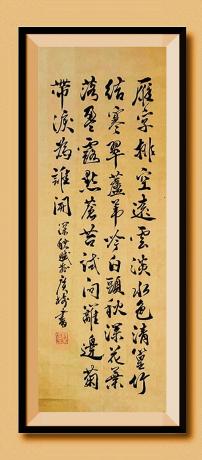 雁字排空遠雲淡水色清篁竹
結寒翠蘆葦吟白頭秋深花葉
落墨露點蒼苔試問離邊菊
帶淚為誰開 深秋賦於廣州書